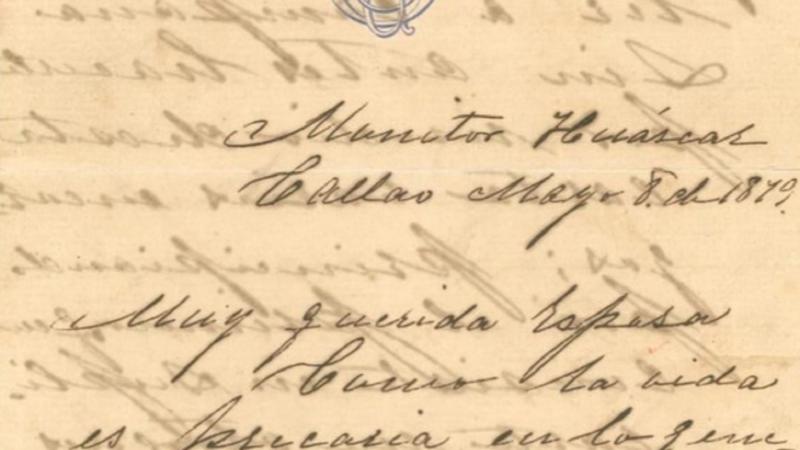 Monitor Huáscar
Callao Mayo 8. de 1879.
Muy querida Esposa
Como la vida
es precaria en lo gene-